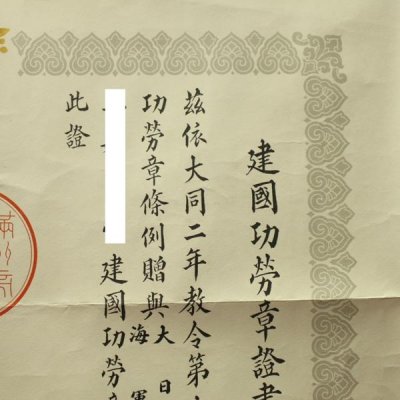 建國功勞章證書
茲依大同二年教令第
功勞章條例贈與大
海 日
軍
建國功勞章
此證